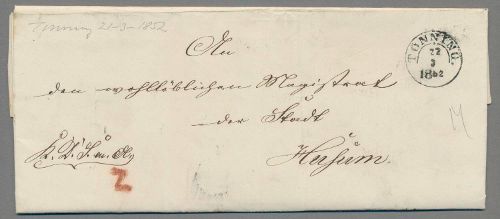 Tönning 21-3-1852
An
TÖNNING.
22
3
1852
den wohllöblichen Magistrat
der Stadt
Husum.
Z